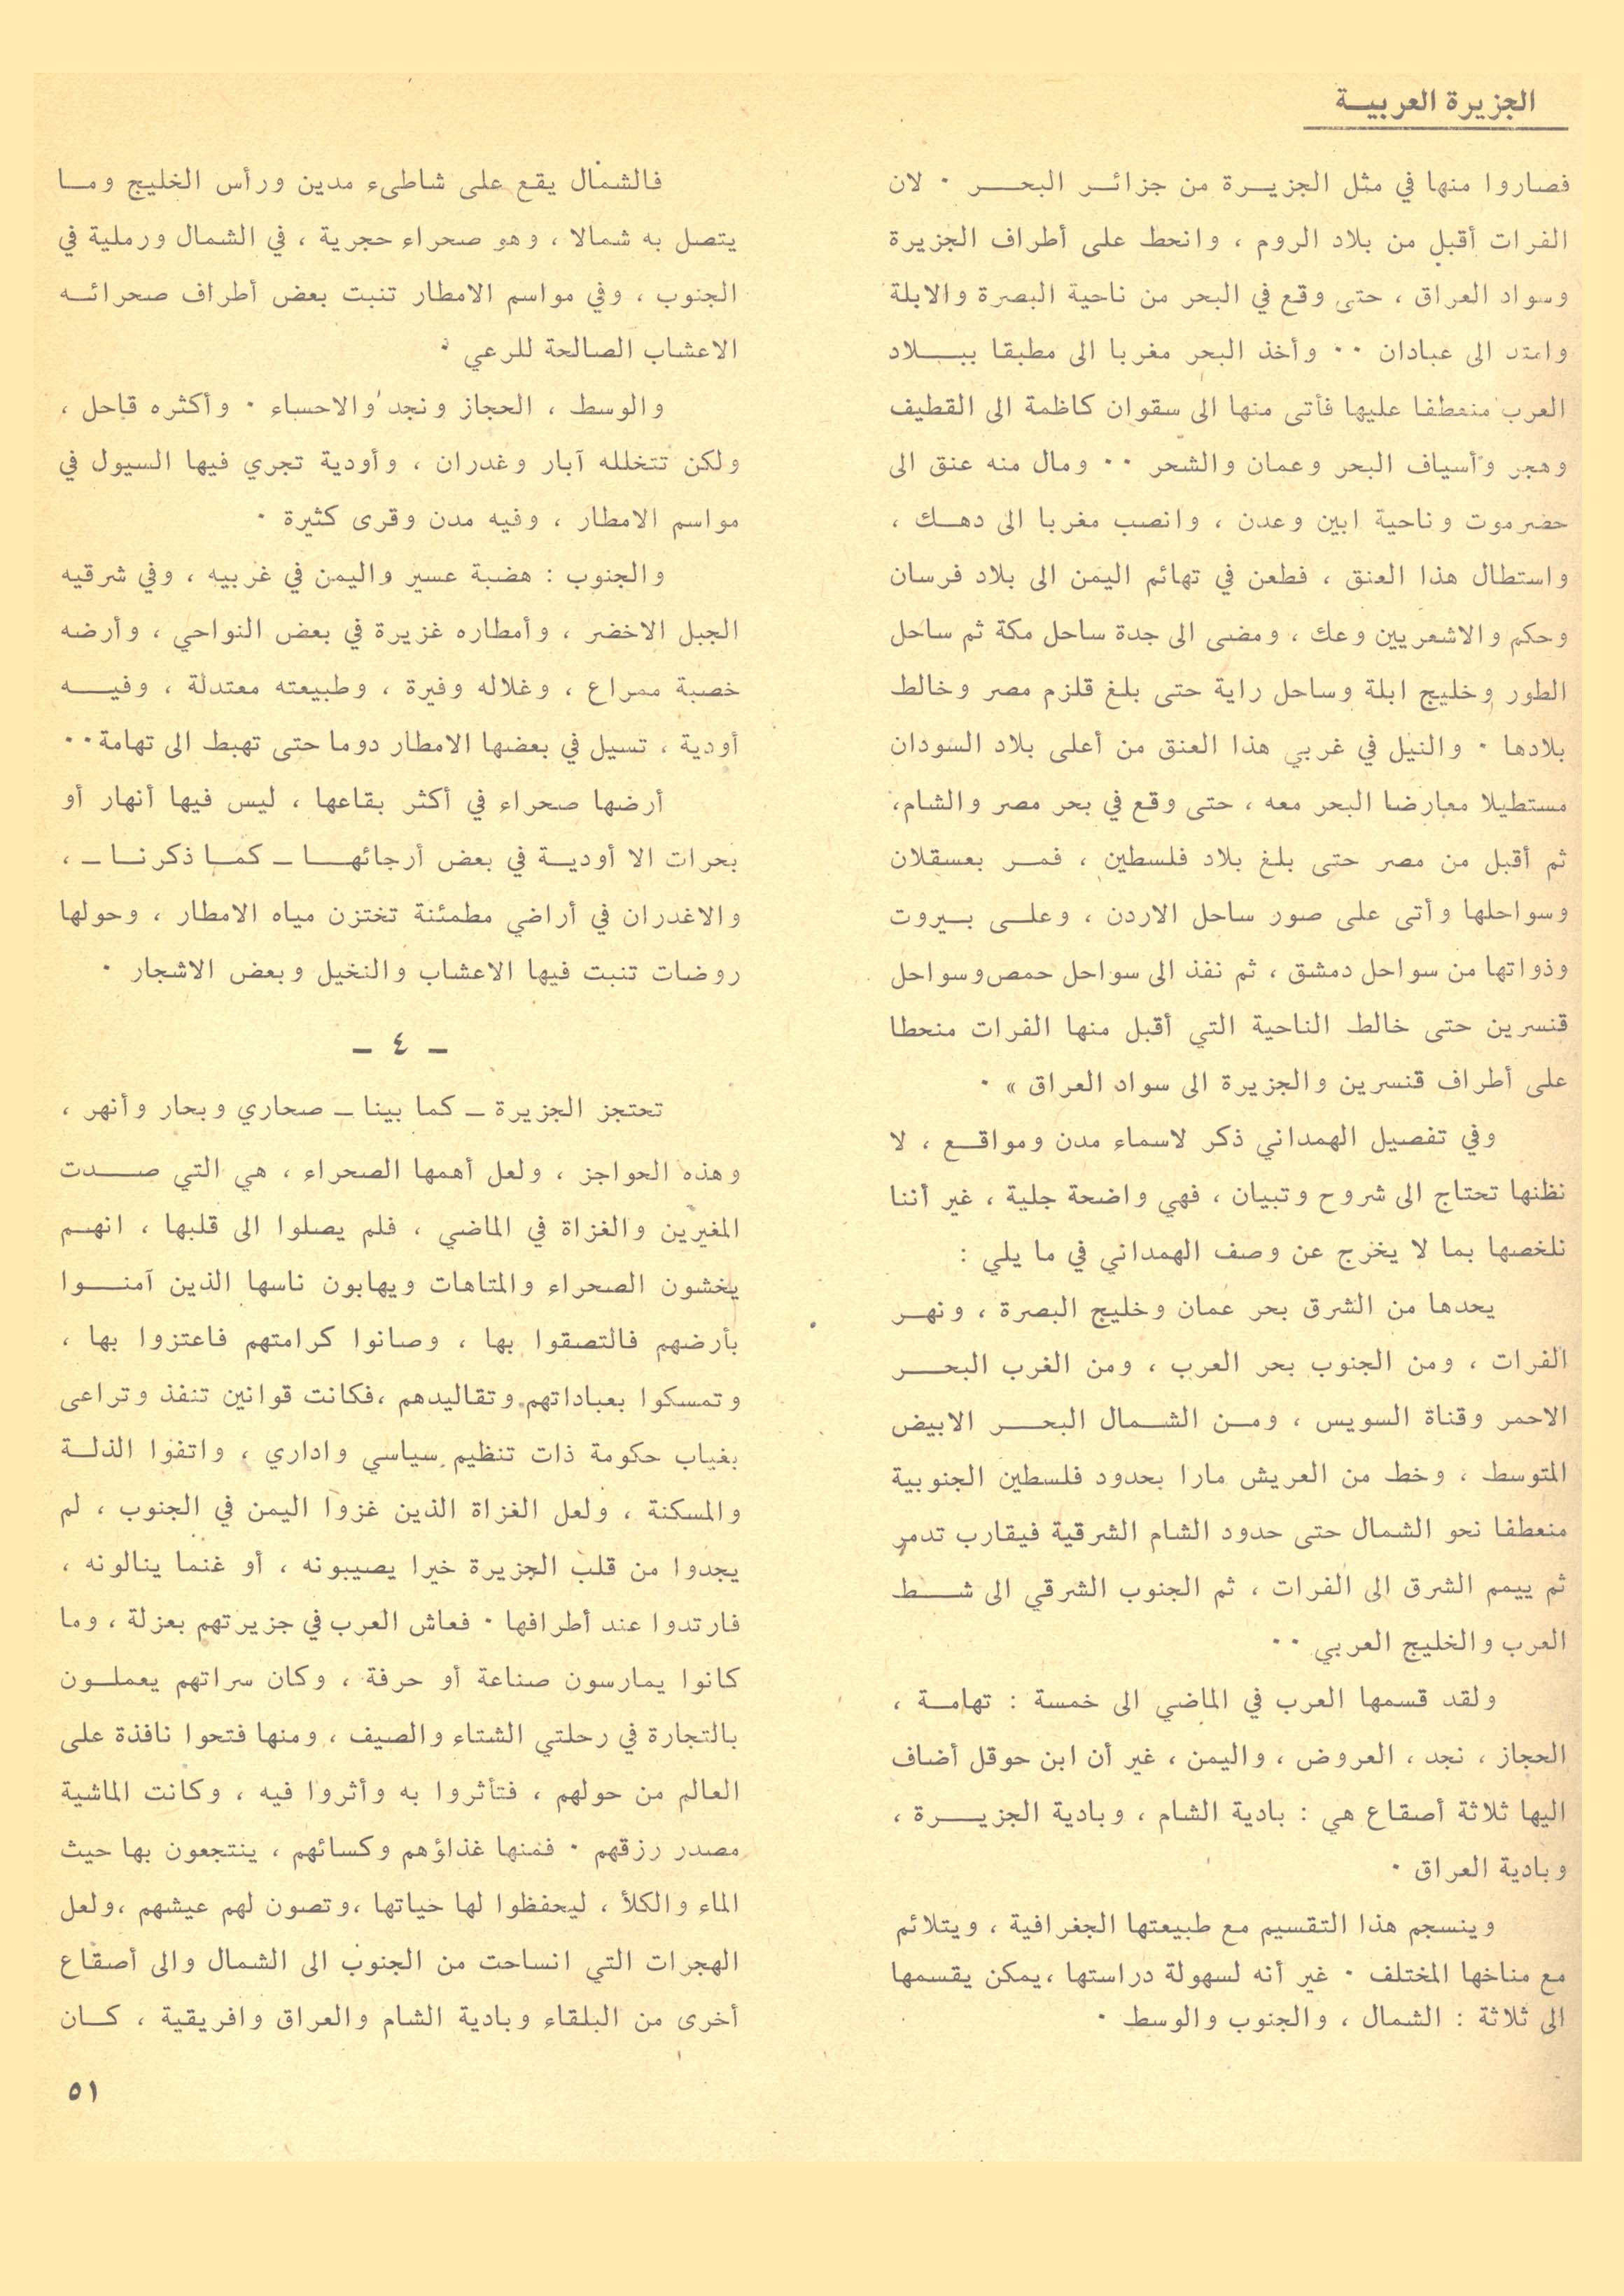 الجزيرة العربية
فصاروا منها في مثل الجزيرة من جزائر البحر ٠ لان
الفرات أقبل من بلاد الروم ، وانحط على أطراف الجزيرة
وسواد العراق ، حتى وقع في البحر من ناحية البصرة والابلة
وامتد الى عبادان ٠٠ وأخذ البحر مغربا الى مطبقا ببلاد
العرب منعطفا عليها فأتى منها الى سقوان كاظمة الى القطيف
وهجر وأسياف البحر وعمان والشحر ٠٠ ومال منه عنق الى
حضرموت وناحية ابين وعدن ، وانصب مغربا الى دهك ،
واستطال هذا العنق ، فطعن في تهائم اليمن الى بلاد فرسان
وحكم والاشعريين وعك ، ومضى الى جدة ساحل مكة ثم ساحل
الطور وخليج ابلة وساحل راية حتى بلغ قلزم مصر وخالط
بلادها ٠ والنيل في غربي هذا العنق من أعلى بلاد السودان
مستطيلا معارضا البحر معه ، حتى وقع في بحر مصر والشام،
ثم أقبل من مصر حتى بلغ بلاد فلسطين ، فمر بعسقلان
وسواحلها وأتى على صور ساحل الاردن ، وعلى بيروت
وذواتها من سواحل دمشق ، ثم نفذ الى سواحل حمص وسواحل
قنسرين حتى خالط الناحية التي أقبل منها الفرات منحطا
على أطراف قنسرين والجزيرة الى سواد العراق » ٠
وفي تفصيل الهمداني ذكر لاسماء مدن ومواقع ، لا
نظنها تحتاج الى شروح وتبيان ، فهي واضحة جلية ، غير أننا
نلخصها بما لا يخرج عن وصف الهمداني في ما يلي :
يحدها من الشرق بحر عمان وخليج البصرة ، ونهر
الفرات ، ومن الجنوب بحر العرب ، ومن الغرب البحر
الاحمر وقناة السويس ، ومن الشمال البحر الابيض
المتوسط ، وخط من العريش مارا بحدود فلسطين الجنوبية
منعطفا نحو الشمال حتى حدود الشام الشرقية فيقارب تدمر
ثم ييمم الشرق الى الفرات ، ثم الجنوب الشرقي الى شط
العرب والخليج العربي ٠٠
ولقد قسمها العرب في الماضي الى خمسة : تهامة ،
الحجاز ، نجد ، العروض ، واليمن ، غير أن ابن حوقل أضاف
اليها ثلاثة أصقاع هي : بادية الشام ، وبادية الجزيرة ،
وبادية العراق ٠
وينسجم هذا التقسيم مع طبيعتها الجغرافية ، ويتلائم
مع مناخها المختلف ٠ غير أنه لسهولة دراستها ،يمكن يقسمها
الى ثلاثة : الشمال ، والجنوب والوسط ٠
فالشمال يقع على شاطىء مدين ورأس الخليج وما
يتصل به شمالا ، وهو صحراء حجرية ، في الشمال ورملية في
الجنوب ، وفي مواسم الامطار تنبت بعض أطراف صحرائه
الاعشاب الصالحة للرعي ٠
والوسط ، الحجاز ونجد والاحساء ٠ وأكثره قاحل ،
ولكن تتخلله آبار وغدران ، وأودية تجري فيها السيول في
مواسم الامطار ، وفيه مدن وقرى كثيرة ٠
والجنوب : هضبة عسير واليمن في غربيه ، وفي شرقيه
الجبل الاخضر ، وأمطاره غزيرة في بعض النواحي ، وأرضه
خصبة ممراع ، وغلاله وفيرة ، وطبيعته معتدلة ، وفيه
أودية ، تسيل في بعضها الامطار دوما حتى تهبط الى تهامة٠٠
أرضها صحراء في أكثر بقاعها ، ليس فيها أنهار أو
بحرات الا أودية في بعض أرجائها ـ كما ذكرنا ـ ،
والاغدران في أراضي مطمئنة تختزن مياه الامطار ، وحولها
روضات تنبت فيها الاعشاب والنخيل وبعض الاشجار ٠
ـ ٤ ـ
تحتجز الجزيرة ـ كما بينا ـ صحاري وبحار وأنهر ،
وهذه الحواجز ، ولعل أهمها الصحراء ، هي التي صدت
المغيرين والغزاة في الماضي ، فلم يصلوا الى قلبها ، انهم
يخشون الصحراء والمتاهات ويهابون ناسها الذين آمنوا
بأرضهم فالتصقوا بها ، وصانوا كرامتهم فاعتزوا بها ،
وتمسكوا بعباداتهم وتقاليدهم ،فكانت قوانين تنفذ وتراعى
بغياب حكومة ذات تنظيم سياسي واداري ، واتقوا الذلة
والمسكنة ، ولعل الغزاة الذين غزوا اليمن في الجنوب ، لم
يجدوا من قلب الجزيرة خيرا يصيبونه ، أو غنما ينالونه ،
فارتدوا عند أطرافها ٠ فعاش العرب في جزيرتهم بعزلة ، وما
كانوا يمارسون صناعة أو حرفة ، وكان سراتهم يعملون
بالتجارة في رحلتي الشتاء والصيف ، ومنها فتحوا نافذة على
العالم من حولهم ، فتأثروا به وأثروا فيه ، وكانت الماشية
مصدر رزقهم ٠ فمنها غذاؤهم وكسائهم ، ينتجعون بها حيث
الماء والكلأ ، ليحفظوا لها حياتها ،وتصون لهم عيشهم ،ولعل
الهجرات التي انساحت من الجنوب الى الشمال والى أصقاع
أخرى من البلقاء وبادية الشام والعراق وافريقية ، كان
٥١